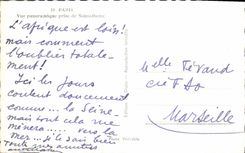 10 PARIS
Vue panoramique prise de Notre-Dame
L'Afrique est loin!
mais comment
l'oublier totale-
ment!
Ici les jours
coulent doucement
comme... la Seine
mais tout cela me
mènera..... vers la
mer... je le sais bien
Toutes mes amitiés
Melle
Marseille